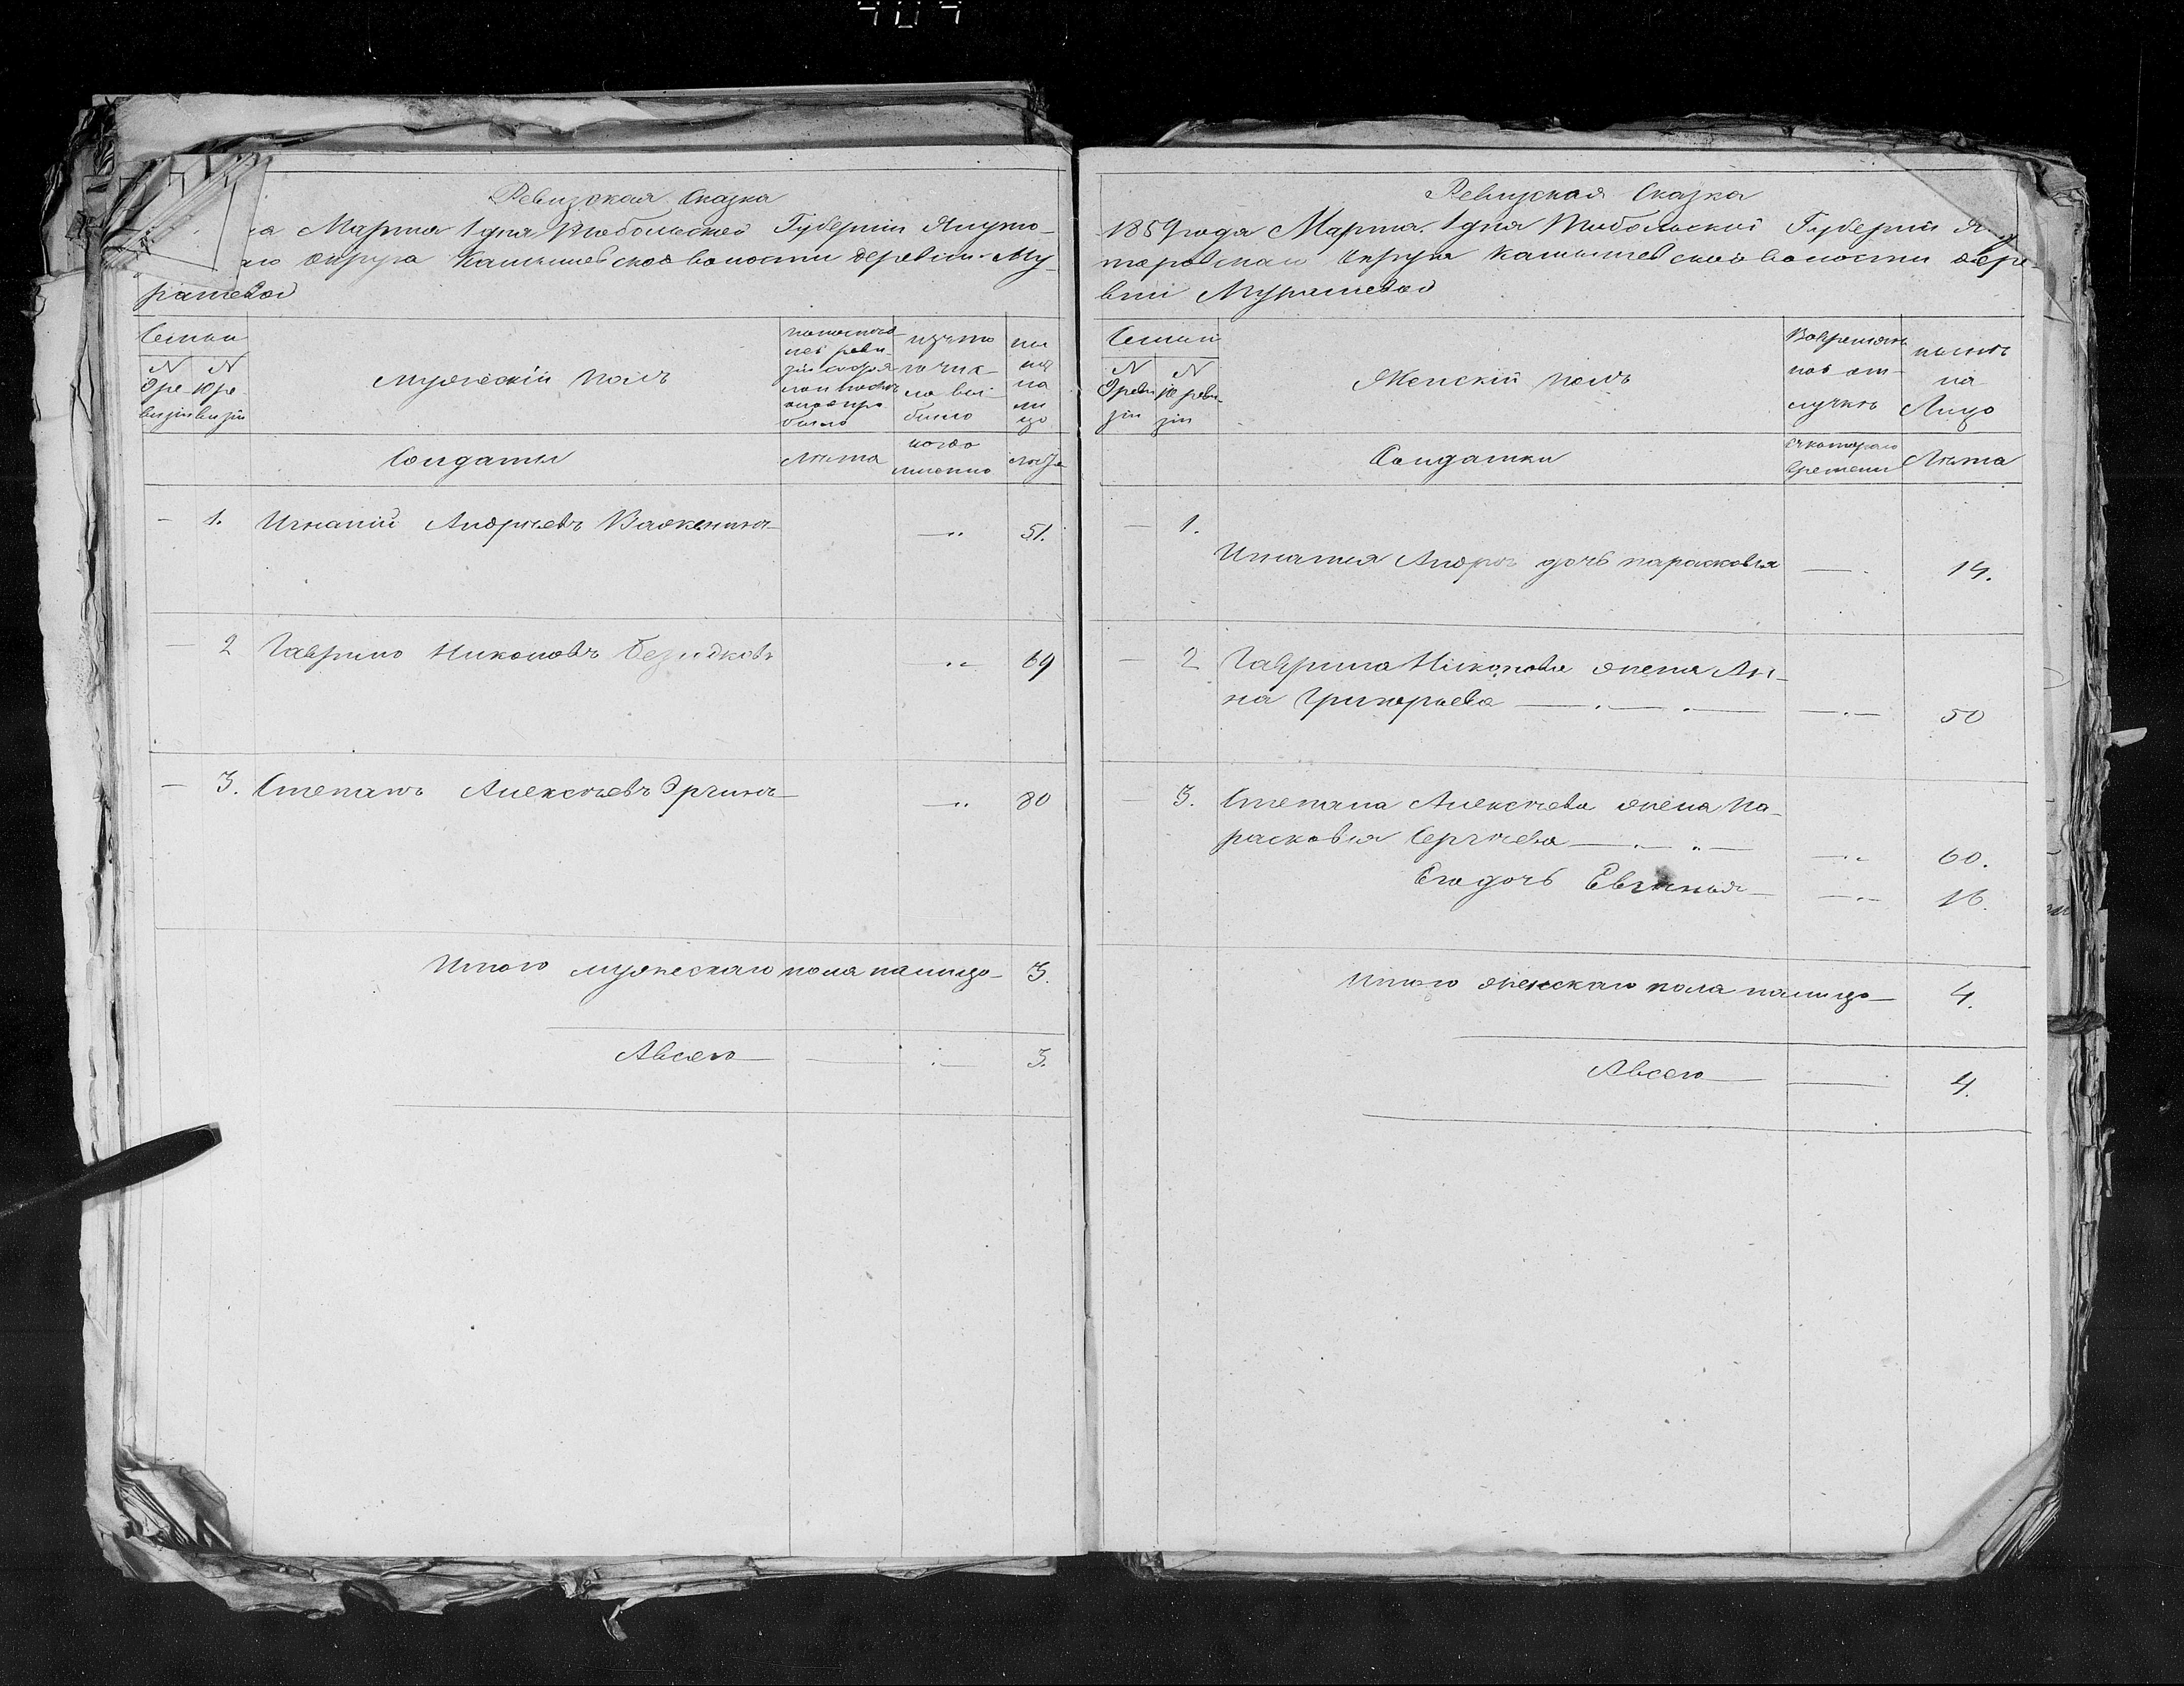 Ревизская Сказка
Марта 1 дня Тобольской Губернии Ялуто-
округа Камышевской волости деревни Му-
рашевой
Семьи
N N
9 ре- 10 ре-
визіи визіи
Мужескій полъ
по послед-
ней реви-
зіи состоя-
было
изъ того
числа вы-
было
ны
нѣ
на
ли
цо
Солдаты
Лѣта
когда
именно
Лѣта
1. Игнатій Андреевъ 51.
2 Гаврило Никоновъ 69
3. Степанъ Алексѣевъ 80
Итого мужескаго пола налицо 3.
А всего 3.
Ревизская Сказка
1859 года Марта 1 дня Тобольской Губерніи Ялу-
торовскаго Округа Камышевской волости дере-
вни Мурашевой
Семьи
N N
9 реви- 10 реви-
зіи зіи
Женскій полъ
Во времен-
ной от-
лучкѣ
нынѣ
на
Лицо
Солдатки
Съ котораго
времени
Лѣта
1.
Игнатія Андреева дочь Парасковья 14.
2 Гаврила Никонова жена Ан-
на Григорьева 50
3. Степана Алексѣева жена Па-
расковья Сергѣева 60.
Его дочь Евгенья 16.
Итого женскаго пола налицо 4.
А всего 4.